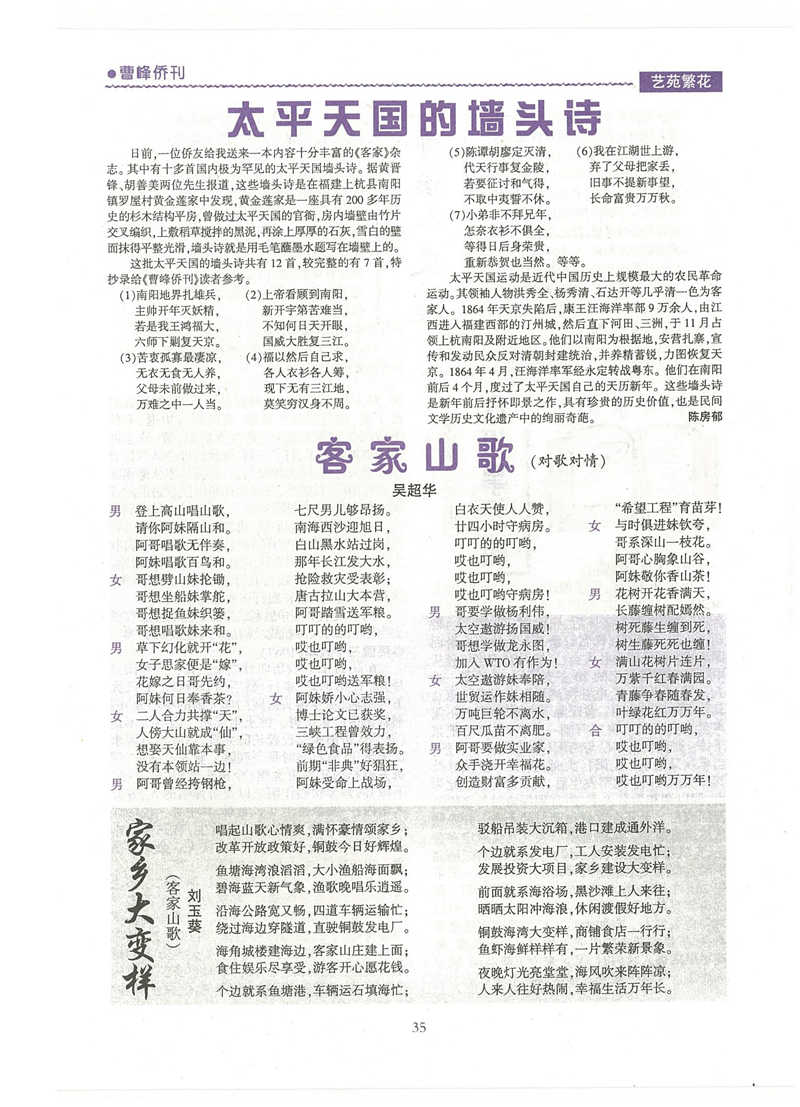 ●曹峰侨刊
艺苑繁花
太平天国的墙头诗
日前,一位侨友给我送来一本内容十分丰富的《客家》杂
志。其中有十多首国内极为罕见的太平天国墙头诗。据黄晋
锋、胡善美两位先生报道,这些墙头诗是在福建上杭县南阳
镇罗屋村黄金莲家中发现,黄金莲家是一座具有 200 多年历
史的杉木结构平房,曾做过太平天国的官衙,房内墙壁由竹片
交叉编织,上敷稻草搅拌的黑泥,再涂上厚厚的石灰,雪白的壁
面抹得平整光滑,墙头诗就是用毛笔蘸墨水题写在墙壁上的。
这批太平天国的墙头诗共有 12 首,较完整的有 7 首,特
抄录给《曹峰侨刊》读者参考。
(1)南阳地界扎雄兵,
主帅开年天妖精,
若是我王鸿福大,
六师下剿复天京。
(2)上帝看顾到南阳,
新开宇第苦难当,
不知何日天开眼,
国威大胜复三江。
(3)苦衷孤寡最凄凉,
无衣无食无人养,
父母未前做过来,
万难之中一人当。
(4)福以然后自己求,
各人衣衫各人筹,
现下无有三江地,
莫笑穷汉身不周。
(5)陈谭胡廖定灭清,
代天行事复金陵,
若要征讨和气得,
不取中夷誓不休。
(6)我在江湖世上游,
弃了父母把家丢,
旧事不提新事望,
长命富贵万万秋。
(7)小弟非不拜兄年,
怎奈衣衫不俱全,
等得日后身荣贵,
重新恭贺也当然。等等。
太平天国运动是近代中国历史上规模最大的农民革命
运动。其领袖人物洪秀全、杨秀清、石达开等几乎清一色为客
家人。1864 年天京失陷后,康王汪海洋率部 9 万余人,由江
西进入福建西部的汀州城,然后直下河田、三洲,于 11 月占
领上杭南阳及附近地区。他们以南阳为根据地,安营扎寨,宣
传和发动民众反对清朝封建统治,并养精蓄锐,力图恢复天
京。1864 年 4 月,汪海洋率军经永定转战粤东。他们在南阳
前后 4 个月,度过了太平天国自己的天历新年。这些墙头诗
是新年前后抒怀即景之作,具有珍贵的历史价值,也是民间
文学历史文化遗产中的绚丽奇葩。 陈房郁
客家山歌(对歌对情)
吴超华
男 登上高山唱山歌,
请你阿妹隔山和。
阿哥唱歌无伴奏,
阿妹唱歌百鸟和。
女 哥想劈山妹抡锄,
哥想坐船妹掌舵,
哥想捉鱼妹织篓,
哥想唱歌妹来和。
男 草下幻化就开“花”,
女子思家便是“嫁”,
花嫁之日哥先约,
阿妹何日奉香茶?
女 二人合力共撑“天”,
人傍大山就成“仙”,
想娶天仙靠本事,
没有本领站一边!
男 阿哥曾经挎钢枪,
七尺男儿够昂扬。
南海西沙迎旭日,
白山黑水站过岗,
那年长江发大水,
抢险救灾受表彰;
唐古拉山大本营,
阿哥踏雪送军粮。
叮叮的的叮哟,
哎也叮哟,
哎也叮哟,
哎也叮哟送军粮!
女 阿妹娇小心志强,
博士论文已获奖,
三峡工程曾效力,
“绿色食品”得表扬。
前期“非典”好猖狂,
阿妹受命上战场,
白衣天使人人赞,
廿四小时守病房。
叮叮的的叮哟,
哎也叮哟,
哎也叮哟,
哎也叮哟守病房!
男 哥要学做杨利伟,
太空遨游扬国威!
哥想学做龙永图,
加入 WTO 有作为!
女 太空遨游妹奉陪,
世贸运作妹相随。
万吨巨轮不离水,
百尺瓜苗不离肥。
男 阿哥要做实业家,
众手浇开幸福花。
创造财富多贡献,
“希望工程”育苗芽!
女 与时俱进妹钦夸,
哥系深山一枝花。
阿哥心胸象山谷,
阿妹敬你香山茶!
男 花树开花香满天,
长藤缠树配嫣然。
树死藤生缠到死,
树生藤死死也缠!
女 满山花树片连片,
万紫千红春满园。
青藤争春随春发,
叶绿花红万万年。
合 叮叮的的叮哟,
哎也叮哟,
哎也叮哟,
哎也叮哟万万年!
家乡大变样
(客家山歌)
刘玉葵
唱起山歌心情爽,满怀豪情颂家乡;
改革开放政策好,铜鼓今日好辉煌。
鱼塘海湾浪滔滔,大小渔船海面飘;
碧海蓝天新气象,渔歌晚唱乐逍遥。
沿海公路宽又畅,四道车辆运输忙;
绕过海边穿隧道,直驶铜鼓发电厂。
海角城楼建海边,客家山庄建上面;
食住娱乐尽享受,游客开心愿花钱。
个边就系鱼塘港,车辆运石填海忙;
驳船吊装大沉箱,港口建成通外洋。
个边就系发电厂,工人安装发电忙;
发展投资大项目,家乡建设大变样。
前面就系海浴场,黑沙滩上人来往;
晒晒太阳冲海浪,休闲渡假好地方。
铜鼓海湾大变样,商铺食店一行行;
鱼虾海鲜样样有,一片繁荣新景象。
夜晚灯光亮堂堂,海风吹来阵阵凉;
人来人往好热闹,幸福生活万年长。
35